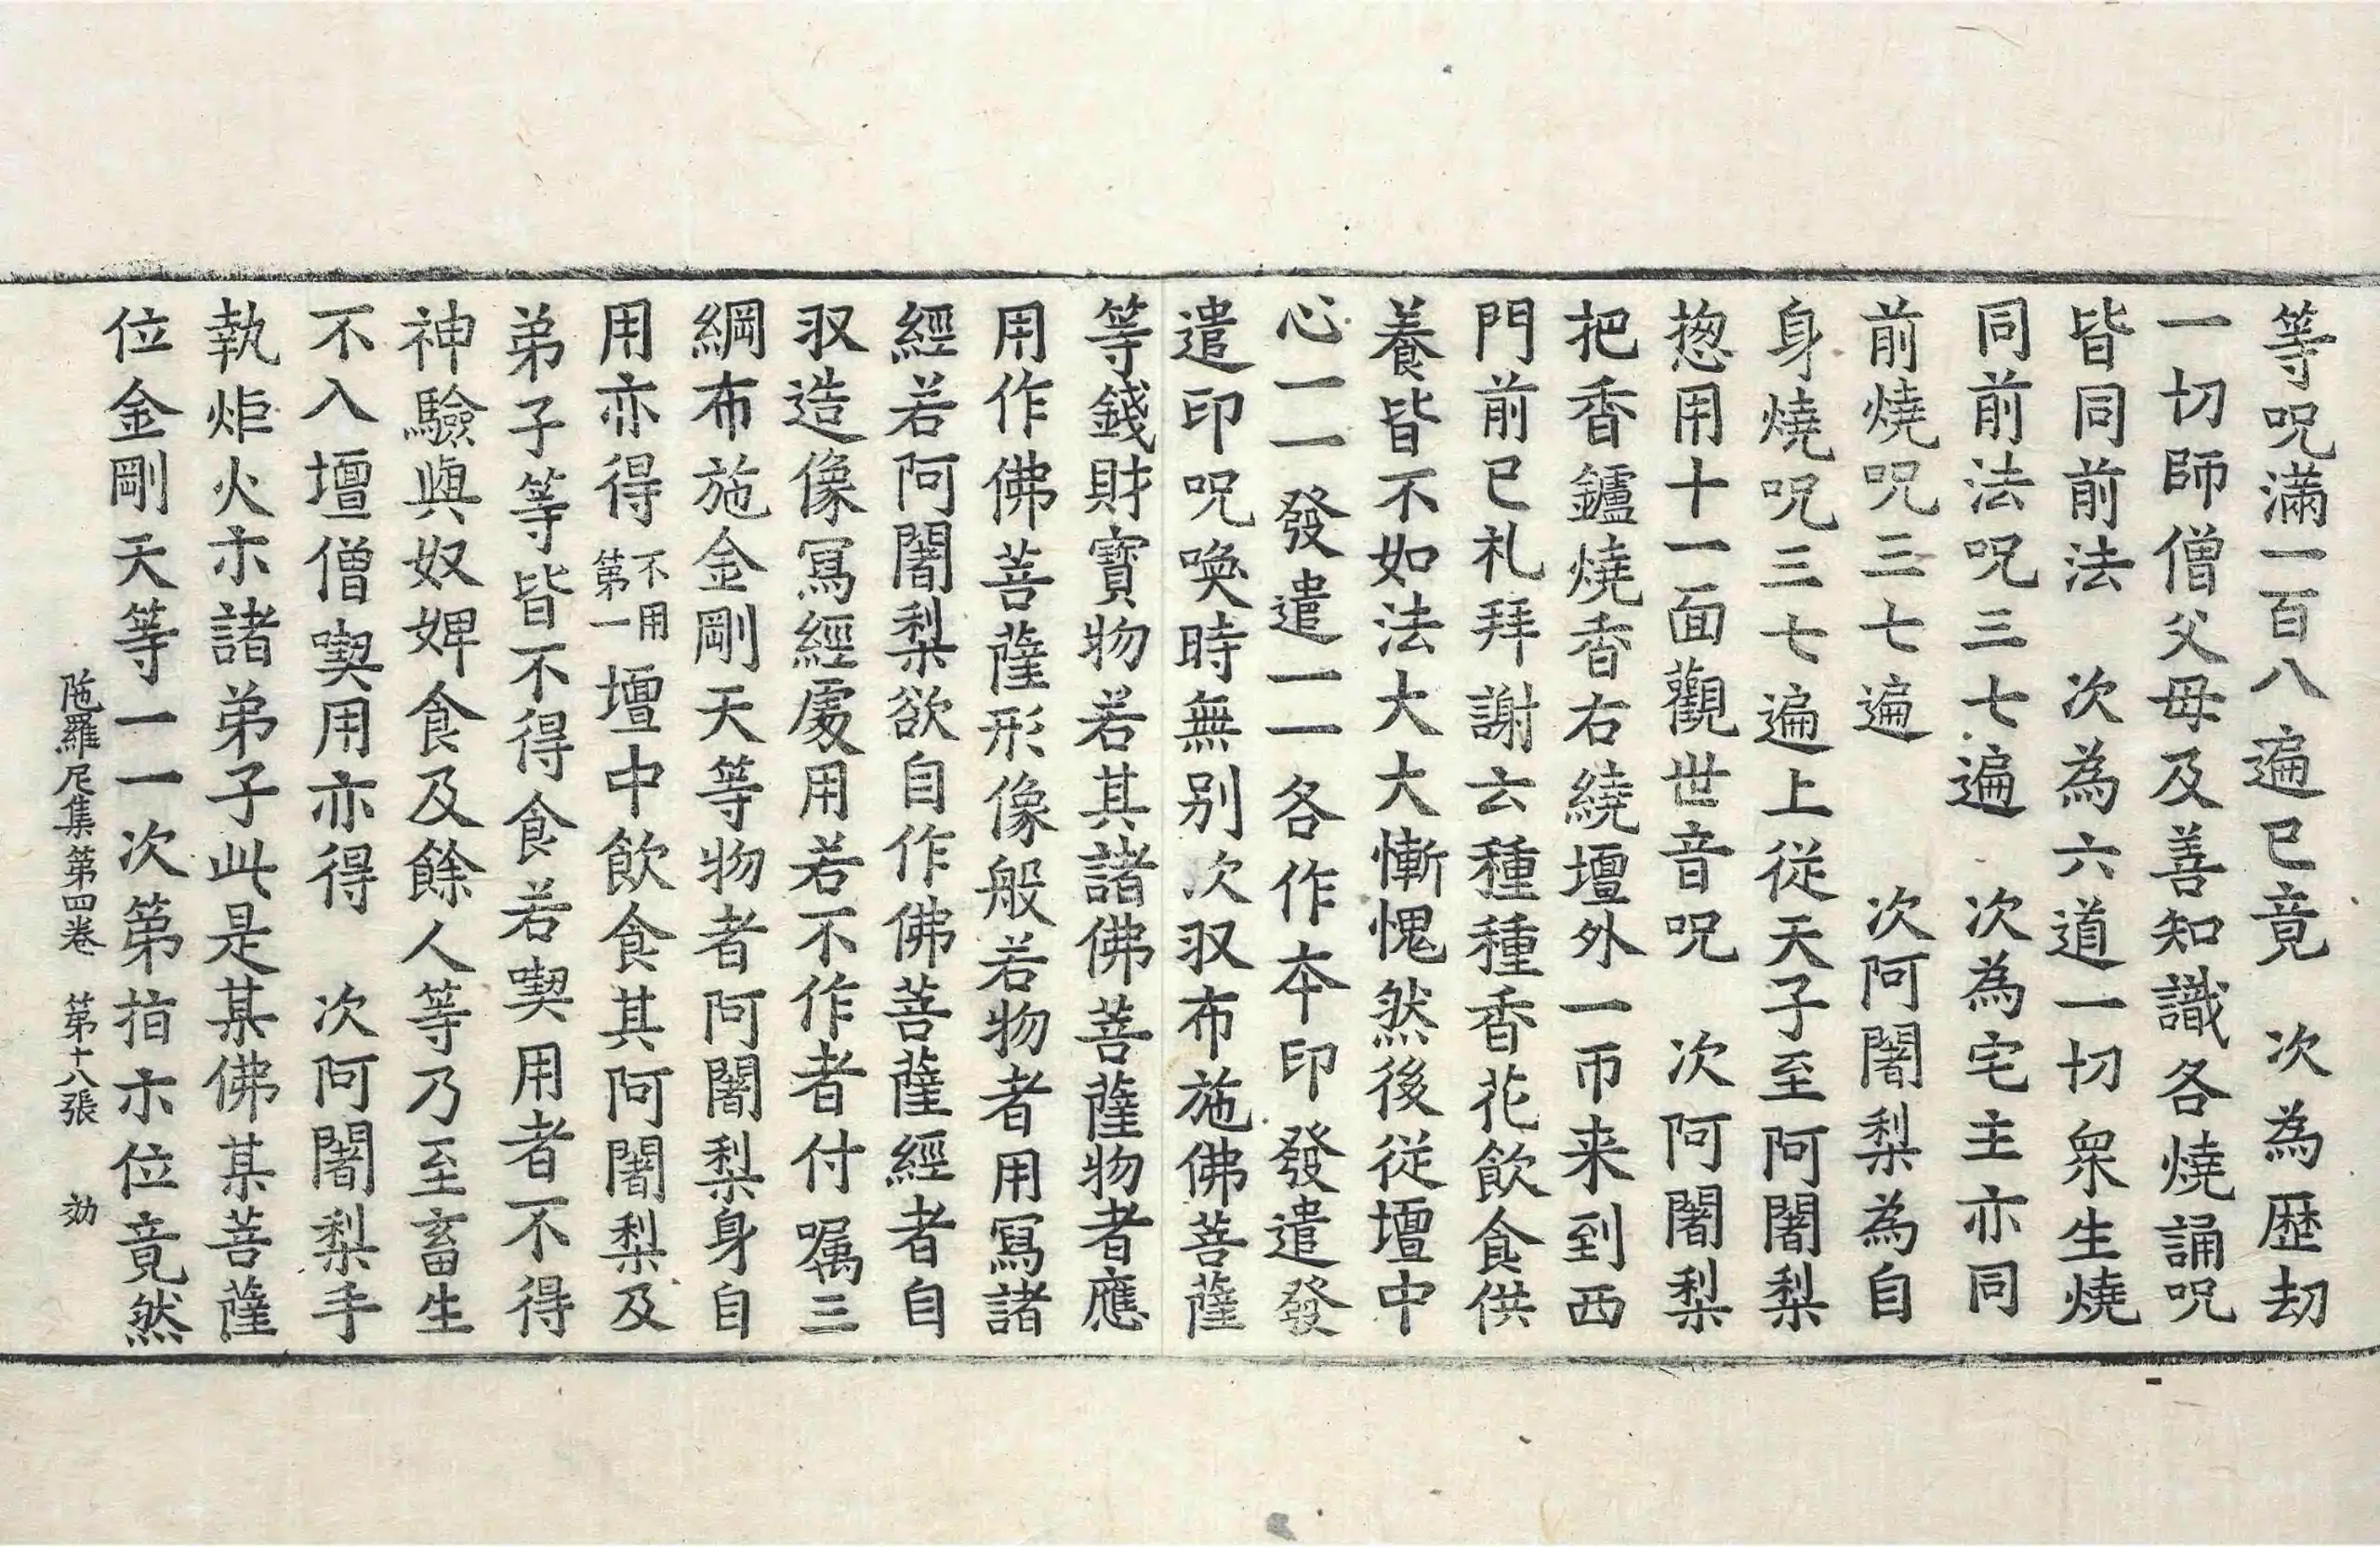 等呪滿一百八遍已竟　次為歷劫
一切師僧父母及善知識各燒誦呪
皆同前法　次為六道一切眾生燒
同前法呪三七遍　次為宅主亦同
前燒呪三七遍　次阿闍梨為自
身燒呪三七遍上從天子至阿闍梨
揔用十一面觀世音呪　次阿闍梨
把香鑪燒香右繞壇外一帀来到西
門前已礼拜謝云種種香花飲食供
養皆不如法大大慚愧然後從壇中
心一一發遣一一各作本印發遣發
遣印呪喚時無別次収布施佛菩薩
等錢財寶物若其諸佛菩薩物者應
用作佛菩薩形像般若物者用寫諸
經若阿闍梨欲自作佛菩薩經者自
収造像寫經處用若不作者付囑三
綱布施金剛天等物者阿闍梨身自
用亦得不用第一壇中飲食其阿闍梨及
弟子等皆不得食若喫用者不得
神驗與奴婢食及餘人等乃至畜生
不入壇僧喫用亦得　次阿闍梨手
執炬火示諸弟子此是某佛某菩薩
位金剛天等一一次第指示位竟然
陁羅尼集第四卷　第十八張　効